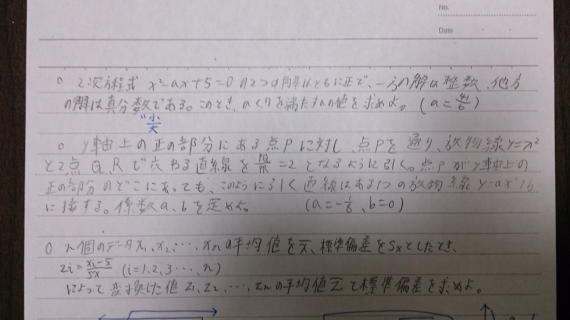 No.
Date
○ 2次方程式 x²-ax+5=0 の2つの解はともに正で、一方の解は整数、他方
の解は真分数である。このとき、a<り を満たすaの値を求めよ。 (a=41/6)
"小/大
○ y軸上の正の部分にある点Pに対し、点Pを通り、放物線y=x²
と2点Q,Rで交わる直線を PQ/PR=2 となるように引く。点Pがy軸上の
正の部分のどこにあっても、このように引く直線はある1つの放物線 y=ax²+b
に接する。係数a,bを定めよ。 (a=-1/8, b=0)
○ n個のデータx₁,x₂,…,xnの平均値をx̄、標準偏差をSxとしたとき、
zi=xi-5/Sx (i=1,2,3…,n)
によって変換した値z₁,z₂,…,znの平均値z̄と標準偏差を求めよ。